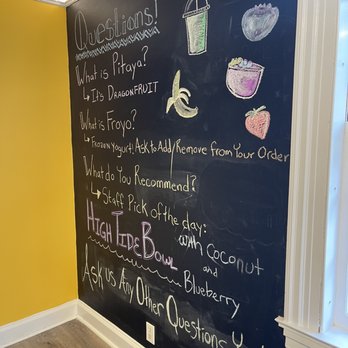 Questions!
What is Pitaya?
↳ It's Dragonfruit
What is Froyo?
↳ Frozen Yogurt! Ask to Add/Remove from Your Order
What do You Recommend?
↳ Staff Pick of the day:
High Tide Bowl
with Coconut
and
Blueberry
Ask us Any Other Questions